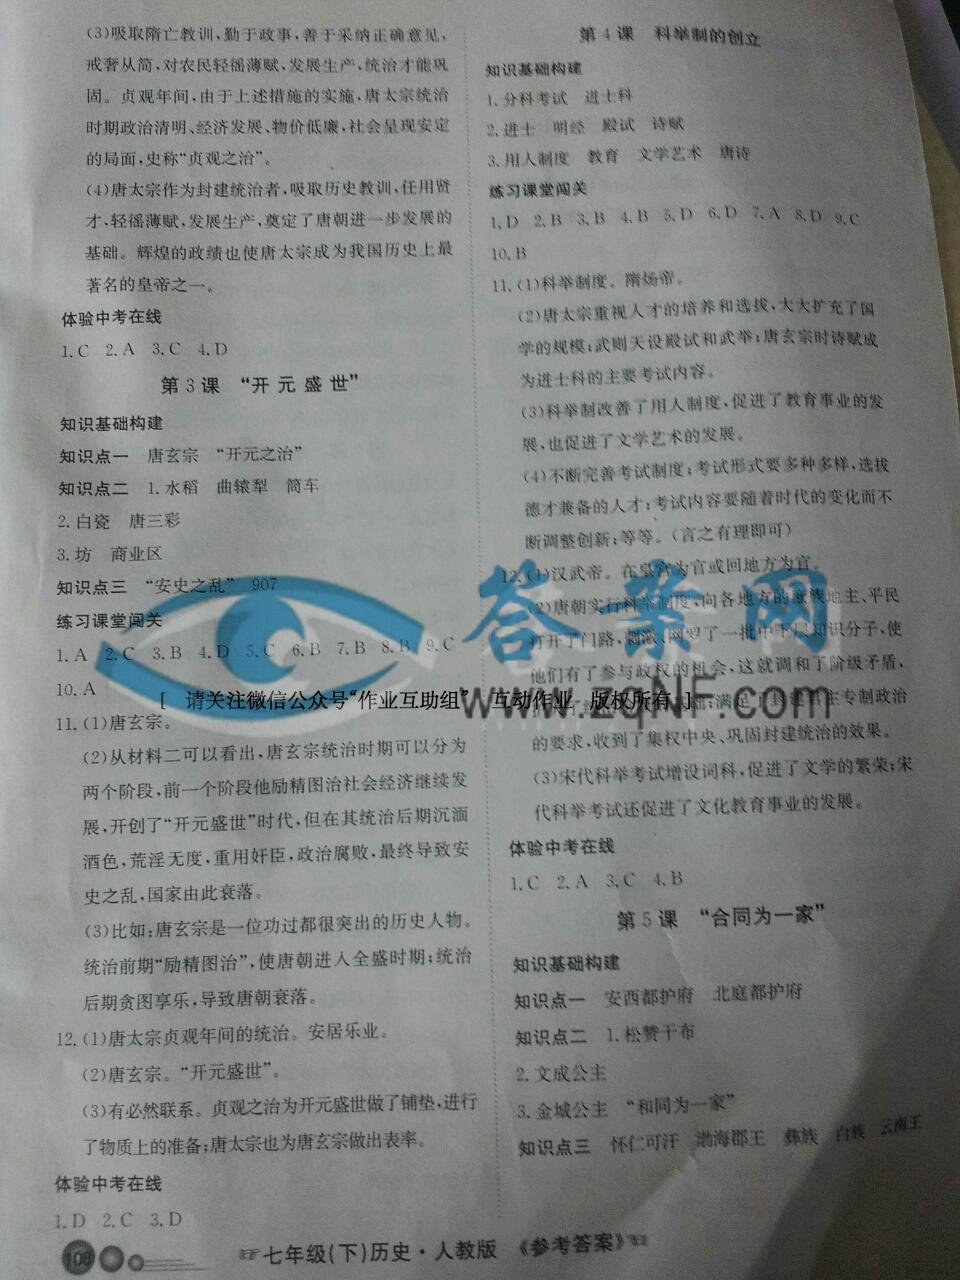 (3)吸取隋亡教训,勤于政事,善于采纳正确意见,
戒奢从简,对农民轻徭薄赋,发展生产,统治才能巩
固。贞观年间,由于上述措施的实施,唐太宗统治
时期政治清明、经济发展、物价低廉,社会呈现安定
的局面,史称“贞观之治”。
(4)唐太宗作为封建统治者,吸取历史教训,任用贤
才,轻徭薄赋,发展生产,奠定了唐朝进一步发展的
基础。辉煌的政绩也使唐太宗成为我国历史上最
著名的皇帝之一。
体验中考在线
1.C 2.A 3.C 4.D
第3课 “开元盛世”
知识基础构建
知识点一 唐玄宗 “开元之治”
知识点二 1.水稻 曲辕犁 筒车
2.白瓷 唐三彩
3.坊 商业区
知识点三 “安史之乱” 907
练习课堂闯关
1.A 2.C 3.B 4.D 5.C 6.B 7.B 8.B 9.C
10.A
11.(1)唐玄宗。
(2)从材料二可以看出,唐玄宗统治时期可以分为
两个阶段,前一个阶段他励精图治社会经济继续发
展,开创了“开元盛世”时代,但在其统治后期沉湎
酒色,荒淫无度,重用奸臣,政治腐败,最终导致安
史之乱,国家由此衰落。
(3)比如:唐玄宗是一位功过都很突出的历史人物。
统治前期“励精图治”,使唐朝进入全盛时期;统治
后期贪图享乐,导致唐朝衰落。
12.(1)唐太宗贞观年间的统治。安居乐业。
(2)唐玄宗。“开元盛世”。
(3)有必然联系。贞观之治为开元盛世做了铺垫,进行
了物质上的准备;唐太宗也为唐玄宗做出表率。
体验中考在线
1.D 2.C 3.D
第4课 科举制的创立
知识基础构建
1.分科考试 进士科
2.进士 明经 殿试 诗赋
3.用人制度 教育 文学艺术 唐诗
练习课堂闯关
1.D 2.B 3.B 4.B 5.D 6.D 7.A 8.D 9.C
10.B
11.(1)科举制度。隋炀帝。
(2)唐太宗重视人才的培养和选拔,大大扩充了国
学的规模;武则天设殿试和武举;唐玄宗时诗赋成
为进士科的主要考试内容。
(3)科举制改善了用人制度,促进了教育事业的发
展,也促进了文学艺术的发展。
(4)不断完善考试制度;考试形式要多种多样,选拔
德才兼备的人才;考试内容要随着时代的变化而不
断调整创新;等等。(言之有理即可)
12.(1)汉武帝。在皇宫为官或回地方为官。
(2)唐朝实行科举制度,向各地方的庶族地主、平民
打开了门路,刺激、网罗了一批中下层知识分子,使
他们有了参与政权的机会,这就调和了阶级矛盾,
满足了封建君主专制政治
的要求,收到了集权中央、巩固封建统治的效果。
(3)宋代科举考试增设词科,促进了文学的繁荣;宋
代科举考试还促进了文化教育事业的发展。
体验中考在线
1.C 2.A 3.C 4.B
第5课 “合同为一家”
知识基础构建
知识点一 安西都护府 北庭都护府
知识点二 1.松赞干布
2.文成公主
3.金城公主 “和同为一家”
知识点三 怀仁可汗 渤海郡王 彝族 白族 云南王
108
七年级(下)历史·人教版 《参考答案》
答案网
www.zqNF.com
[ 请关注微信公众号“作业互助组” 互动作业 版权所有 ]